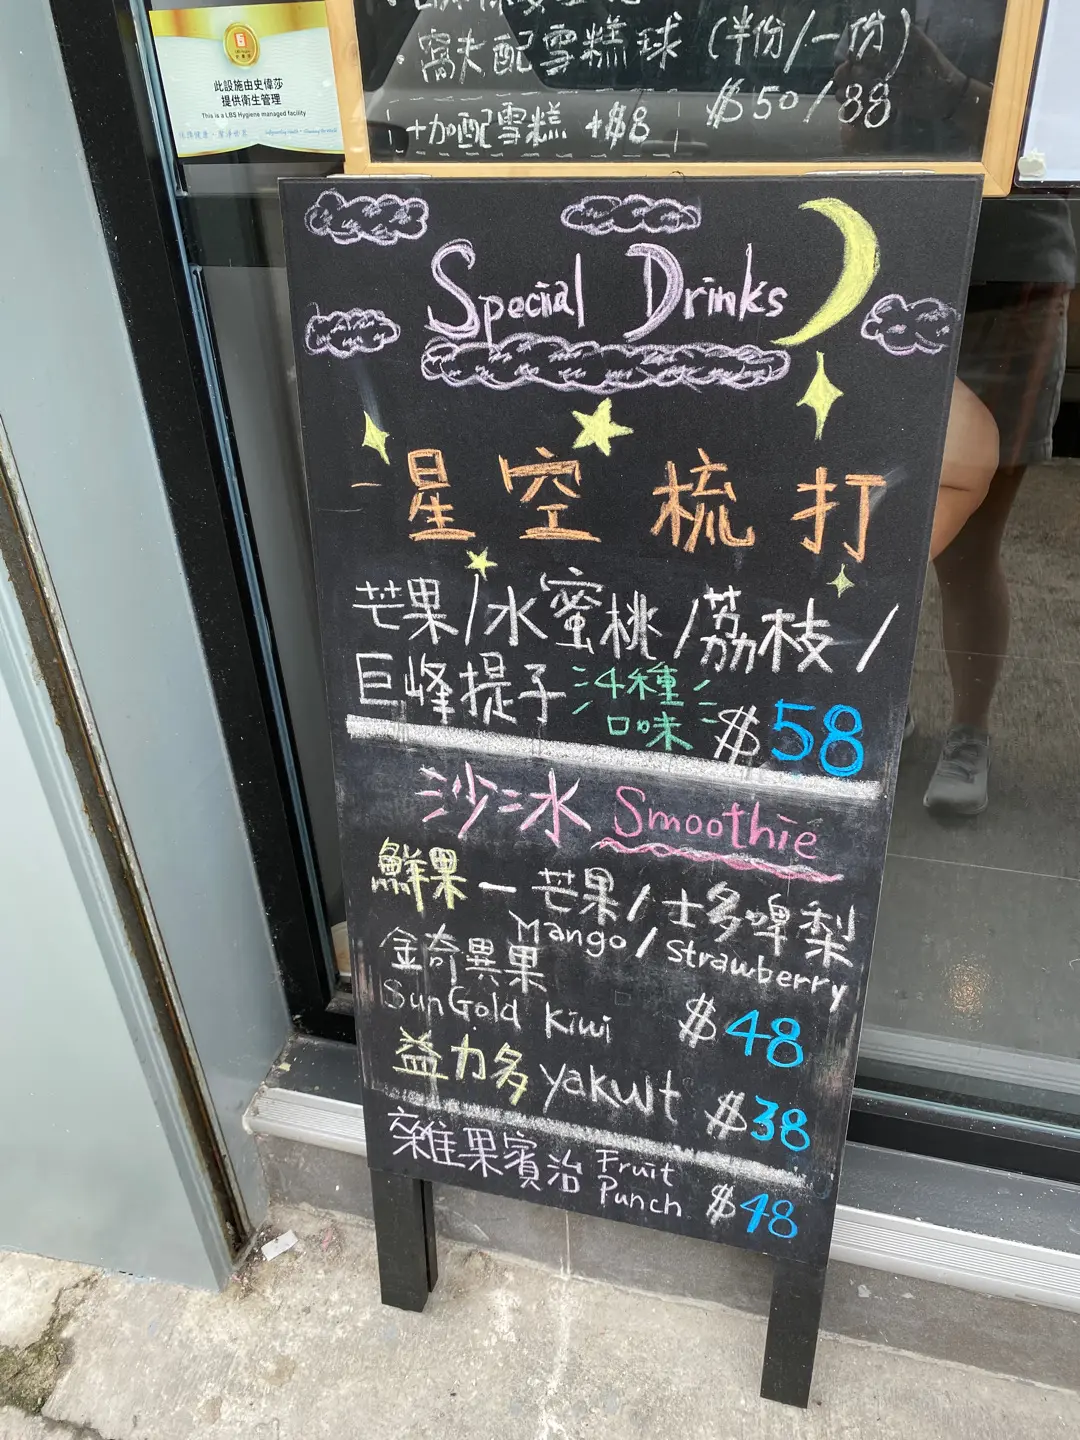 此設施由史偉莎
提供衛生管理
This is a LBS Hygiene managed facility
窩夫配雪糕球 (半份/一份)
$50/88
+加配雪糕 +$8
Special Drinks
星空梳打
芒果/水蜜桃/荔枝/
巨峰提子 4種口味 $58
沙冰 Smoothie
鮮果 — 芒果/士多啤梨
Mango/Strawberry
金奇異果
SunGold Kiwi $48
益力多 yakult $38
雜果賓治 Fruit Punch $48